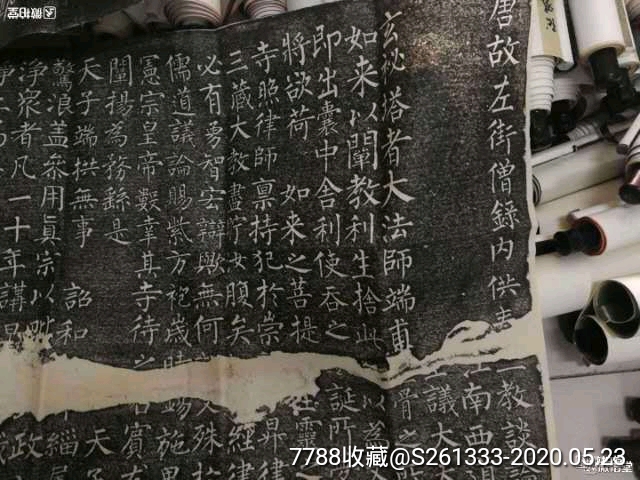 唐故左街僧錄内供奉
三教談論
江南西道
玄秘塔者大法師端甫
議大夫
骨之所
如来以闡教利生捨此
以為
即出囊中舍利使吞之
誕所
將欲荷 如来之菩提
在靈
寺照律師禀持犯於崇
昇律
三藏大教盡貯汝腹矣
經律
必有勇智宏辯歟無何
殊
儒道議論賜紫方袍歲時錫施異
憲宗皇帝數幸其寺待之若賓友
闡揚為務繇是 天子
天子端拱無事 詔和 緇
驚浪盖參用真宗以毗 政
淨眾者凡一十年講
7788收藏@S261333-2020.05.23
微拍堂